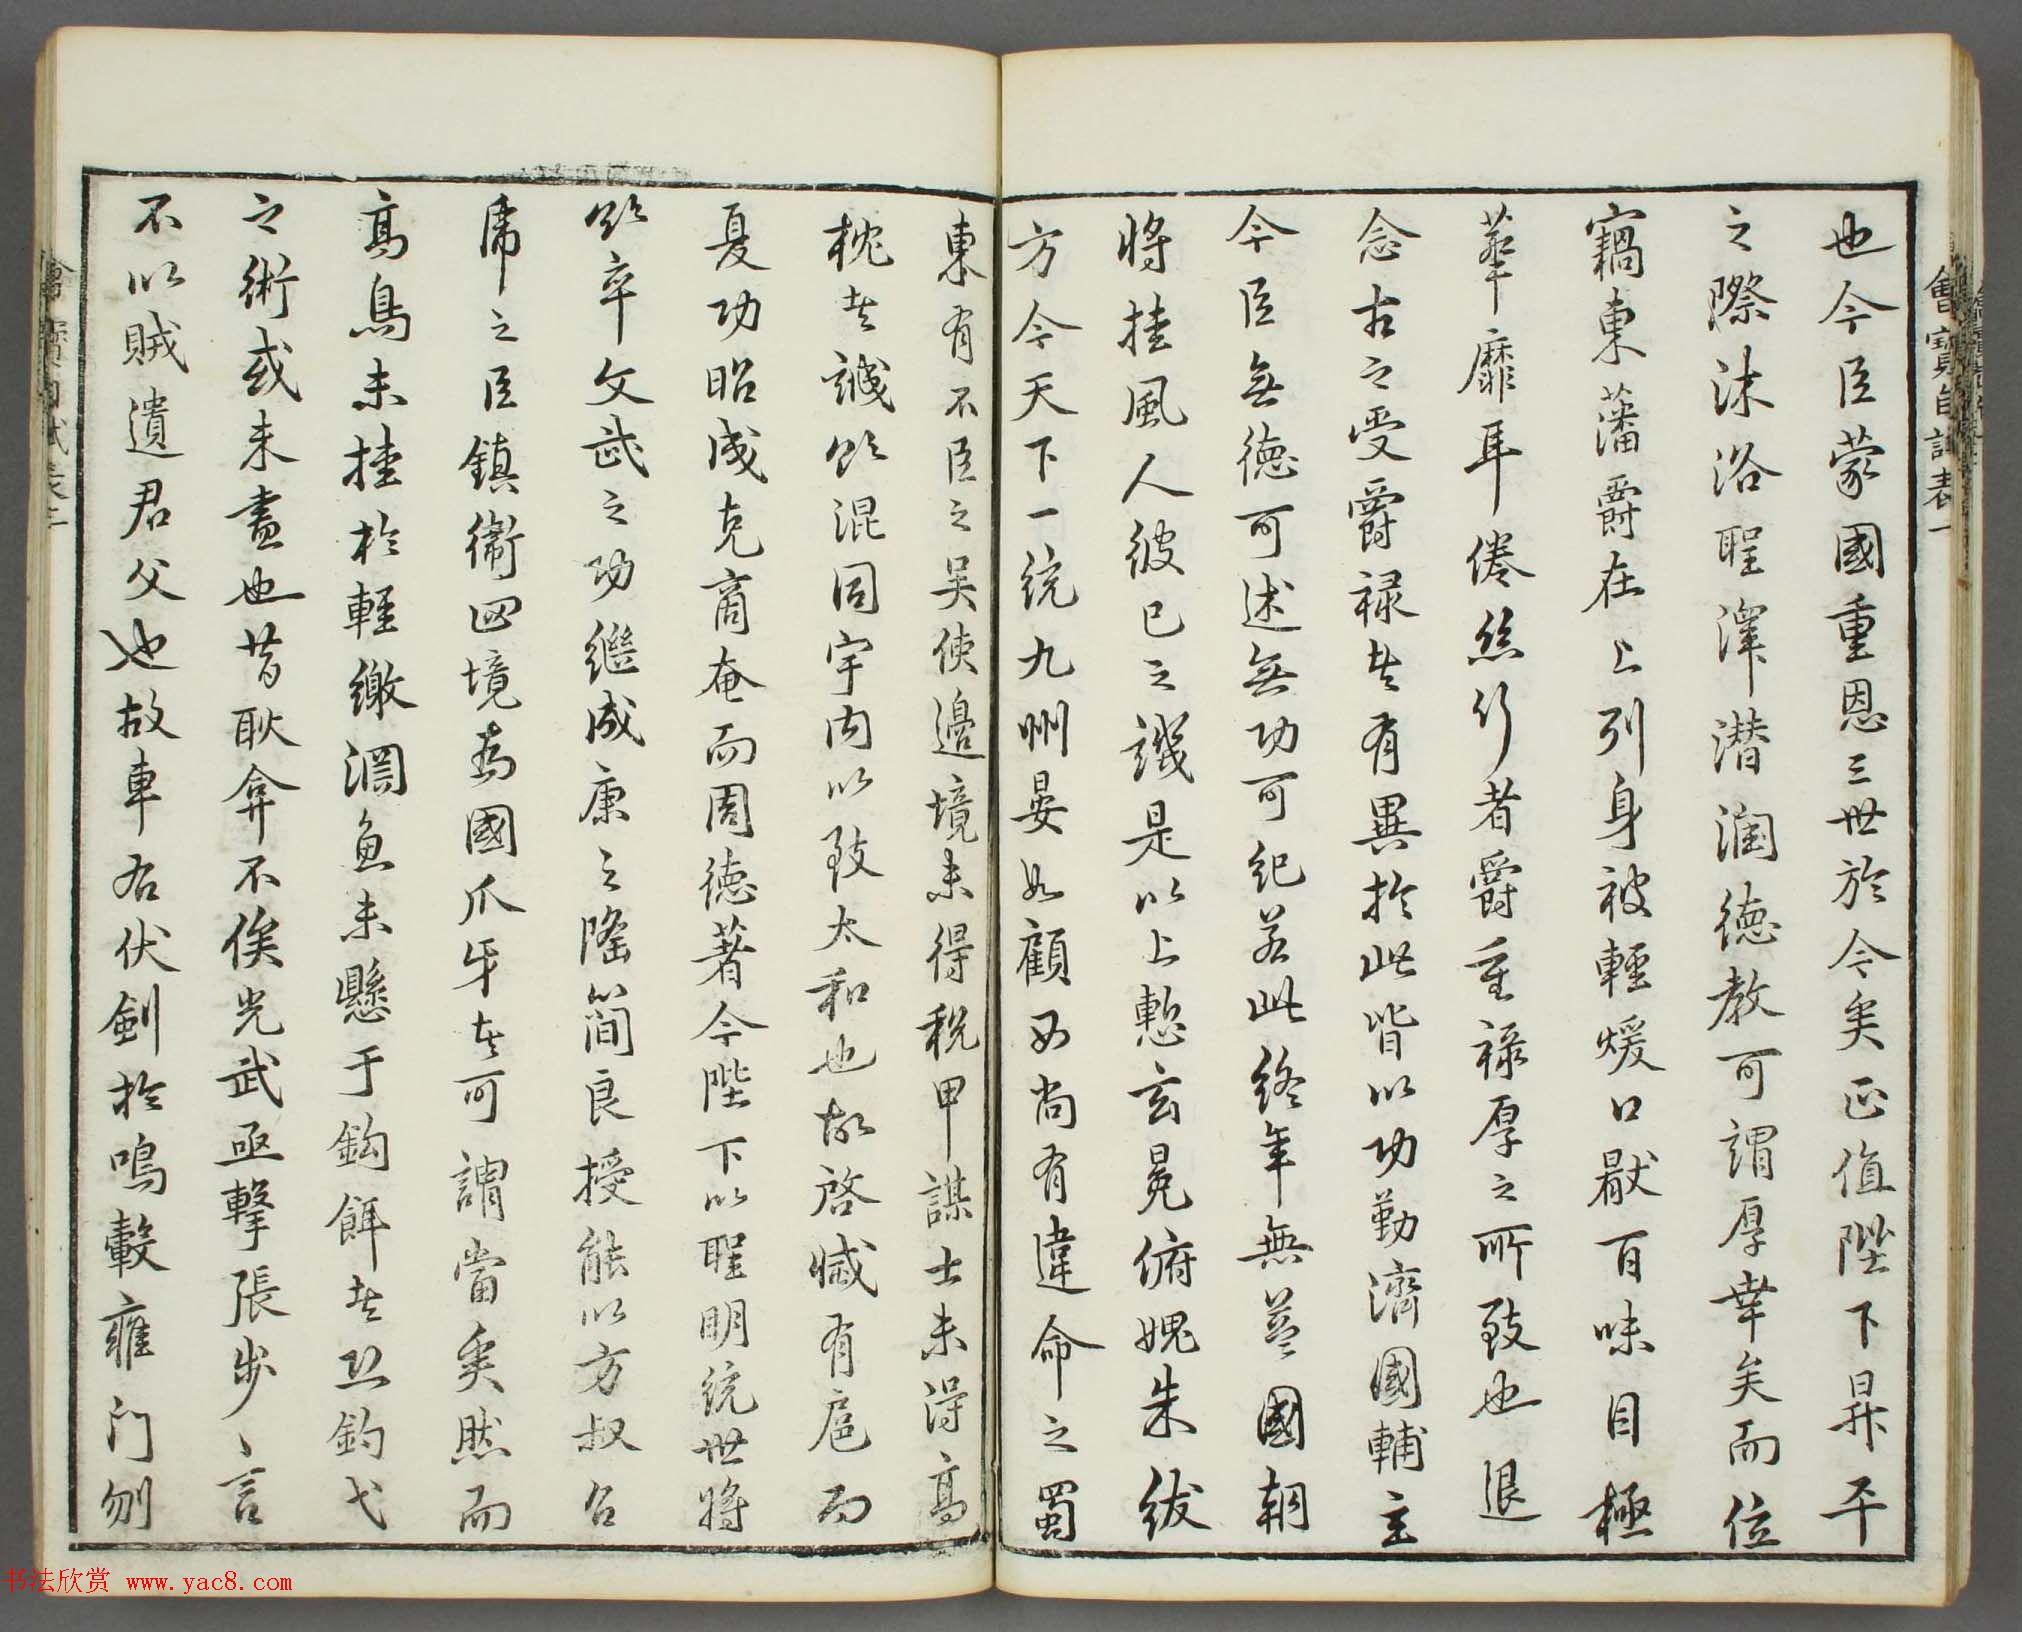 會寶自試表一
也今臣蒙國重恩三世於今矣正值陛下昇平
之際沐浴聖澤潛潤德教可謂厚幸矣而位
竊東藩爵在上列身被輕煖口厭百味目極
華靡耳倦絲竹者爵重祿厚之所致也退
念古之受爵祿者有異於此皆以功勤濟國輔主
今臣無德可述無功可紀若此終年無益國朝
將挂風人彼己之譏是以上慙玄冕俯愧朱紱
方今天下一統九州晏如顧西尚有違命之蜀
東有不臣之吳使邊境未得稅甲謀士未得高
枕者誠欲混同宇內以致太和也故啓滅有扈而
夏功昭成克商奄而周德著今陛下以聖明統世將
欲卒文武之功繼成康之隆簡良授能以方叔召
虎之臣鎮衛四境為國爪牙者可謂當矣然而
高鳥未挂於輕繳淵魚未懸于鈎餌者恐釣弋
之術或未盡也昔耿弇不俟光武亟擊張步〻言
不以賊遺君父也故車右伏劍於鳴轂雍門刎
书法欣赏 www.yac8.com